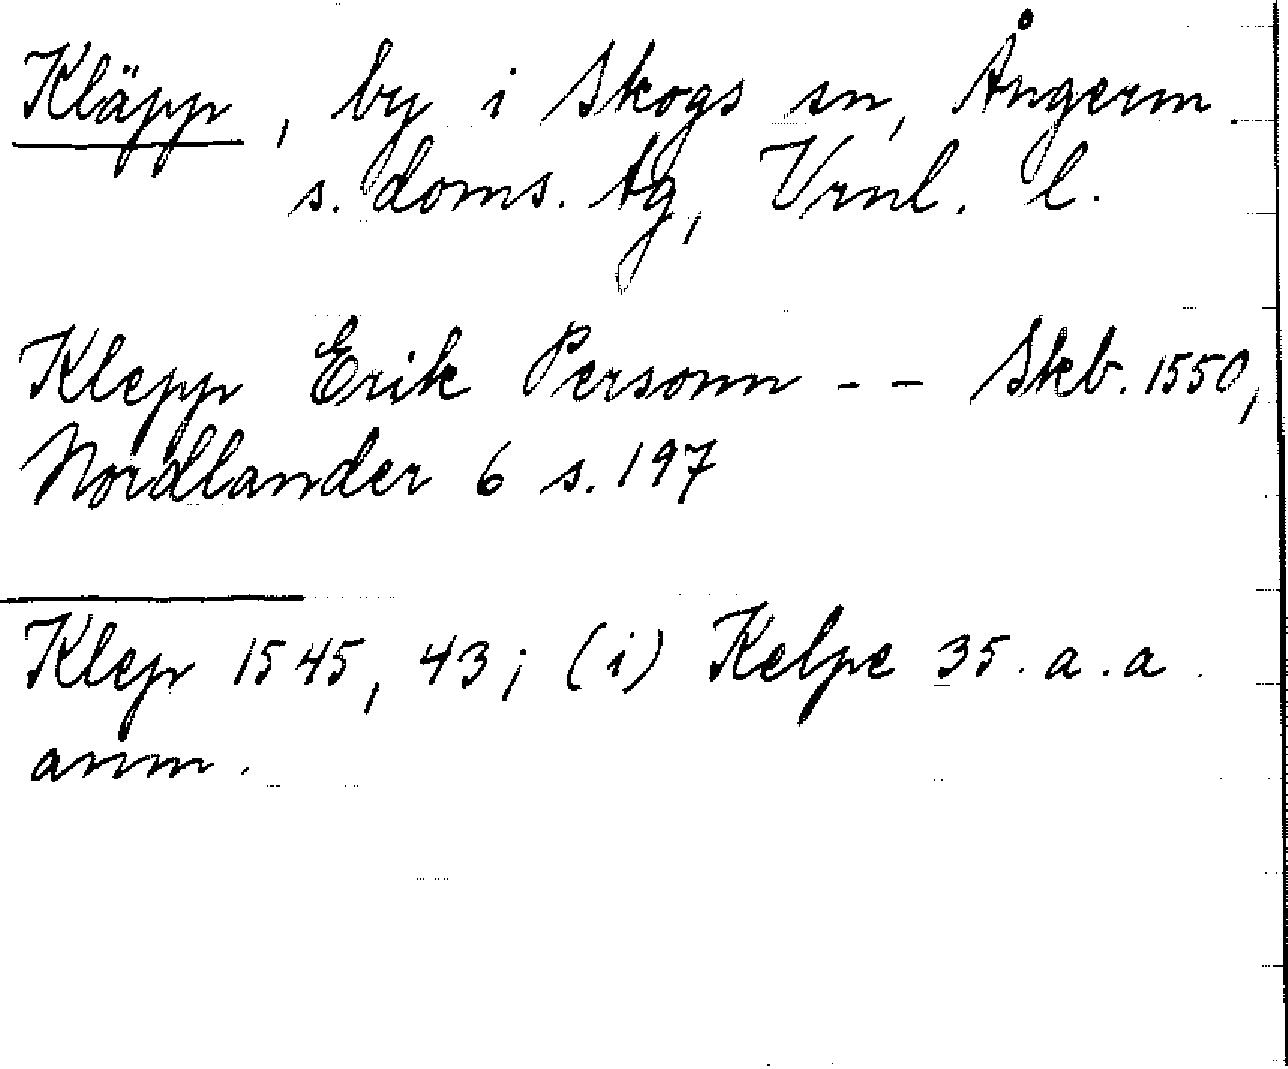 Kläpp, by i Skogs sn, Ångerm.
s. doms. tg, Vrnl. l.
Klepp Erik Personn - - Skb. 1550,
Nordlander 6 s. 197
Klep 1545, 43; (i) Kelpe 35. a. a.
anm.